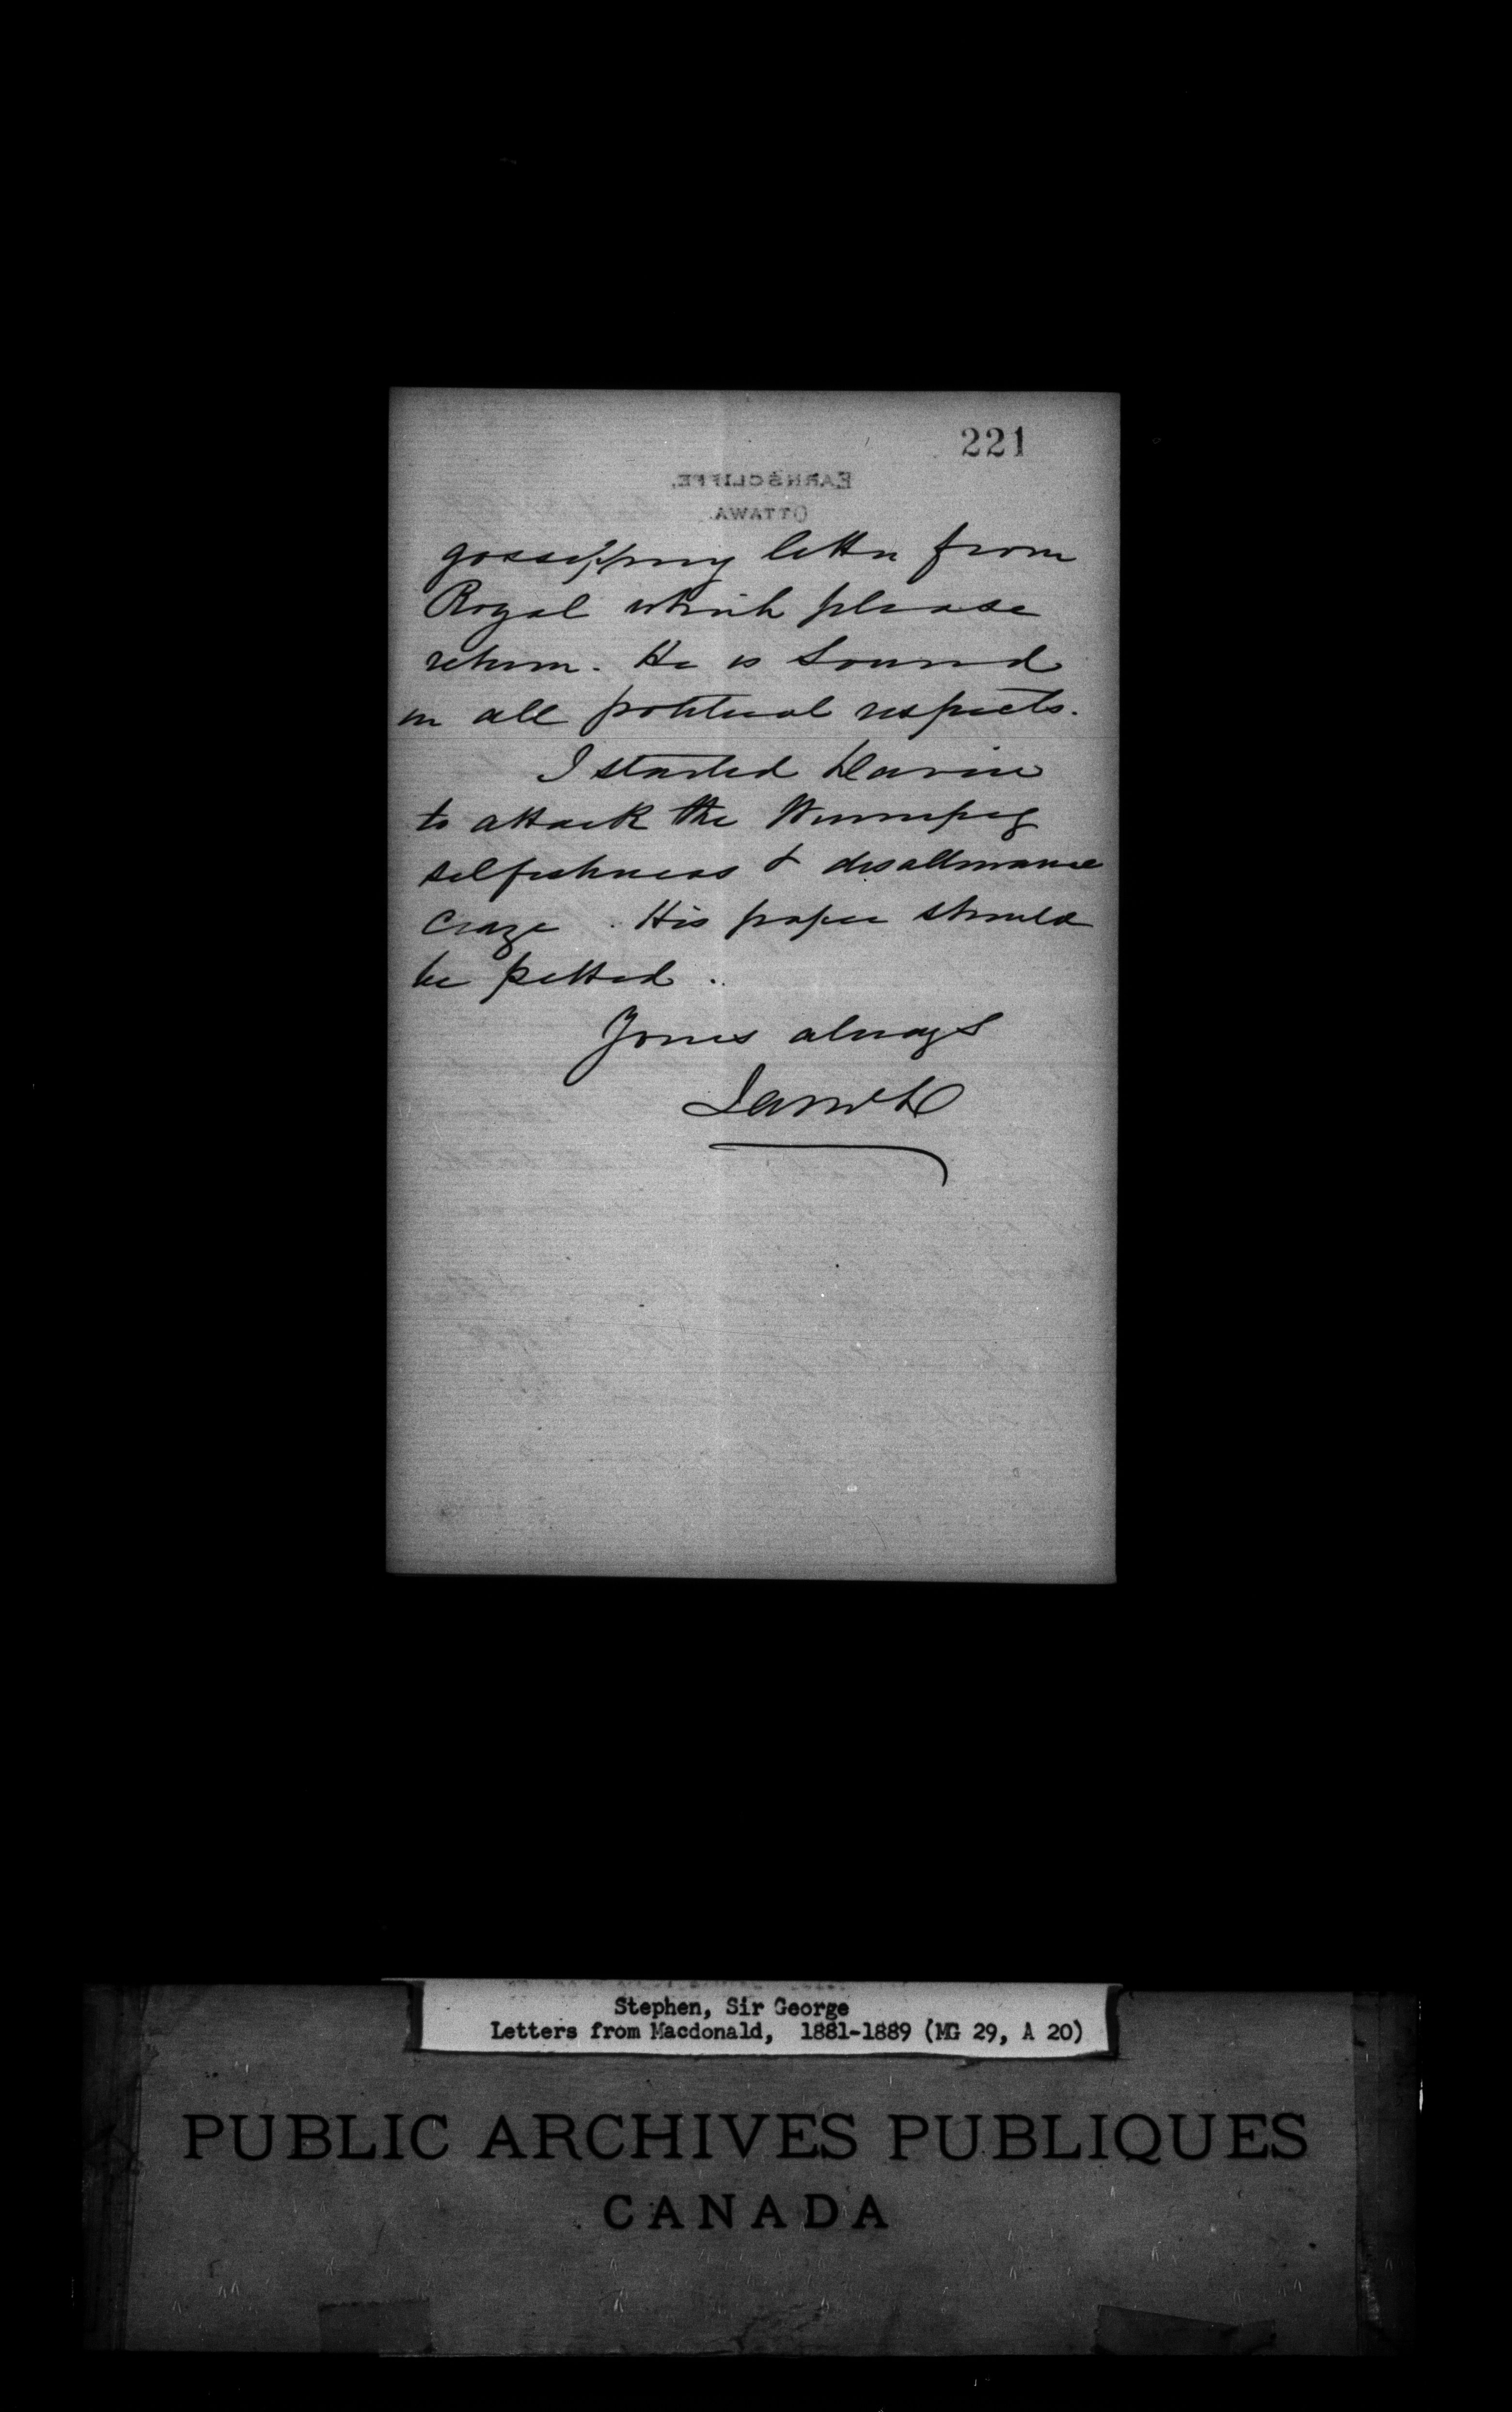 221
EARNSCLIFFE,
OTTAWA.
gossipping letter from
Royal which please
return. He is sound
in all political respects.
I started Davin
to attack the Winnipeg
selfishness & disallowance
craze. His paper should
be petted.
Yours always
JAMcD
Stephen, Sir George
Letters from Macdonald, 1881-1889 (MG 29, A 20)
PUBLIC ARCHIVES PUBLIQUES
CANADA